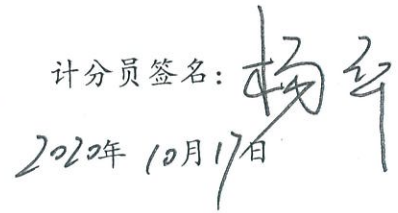 计分员签名：杨
2020年10月17日